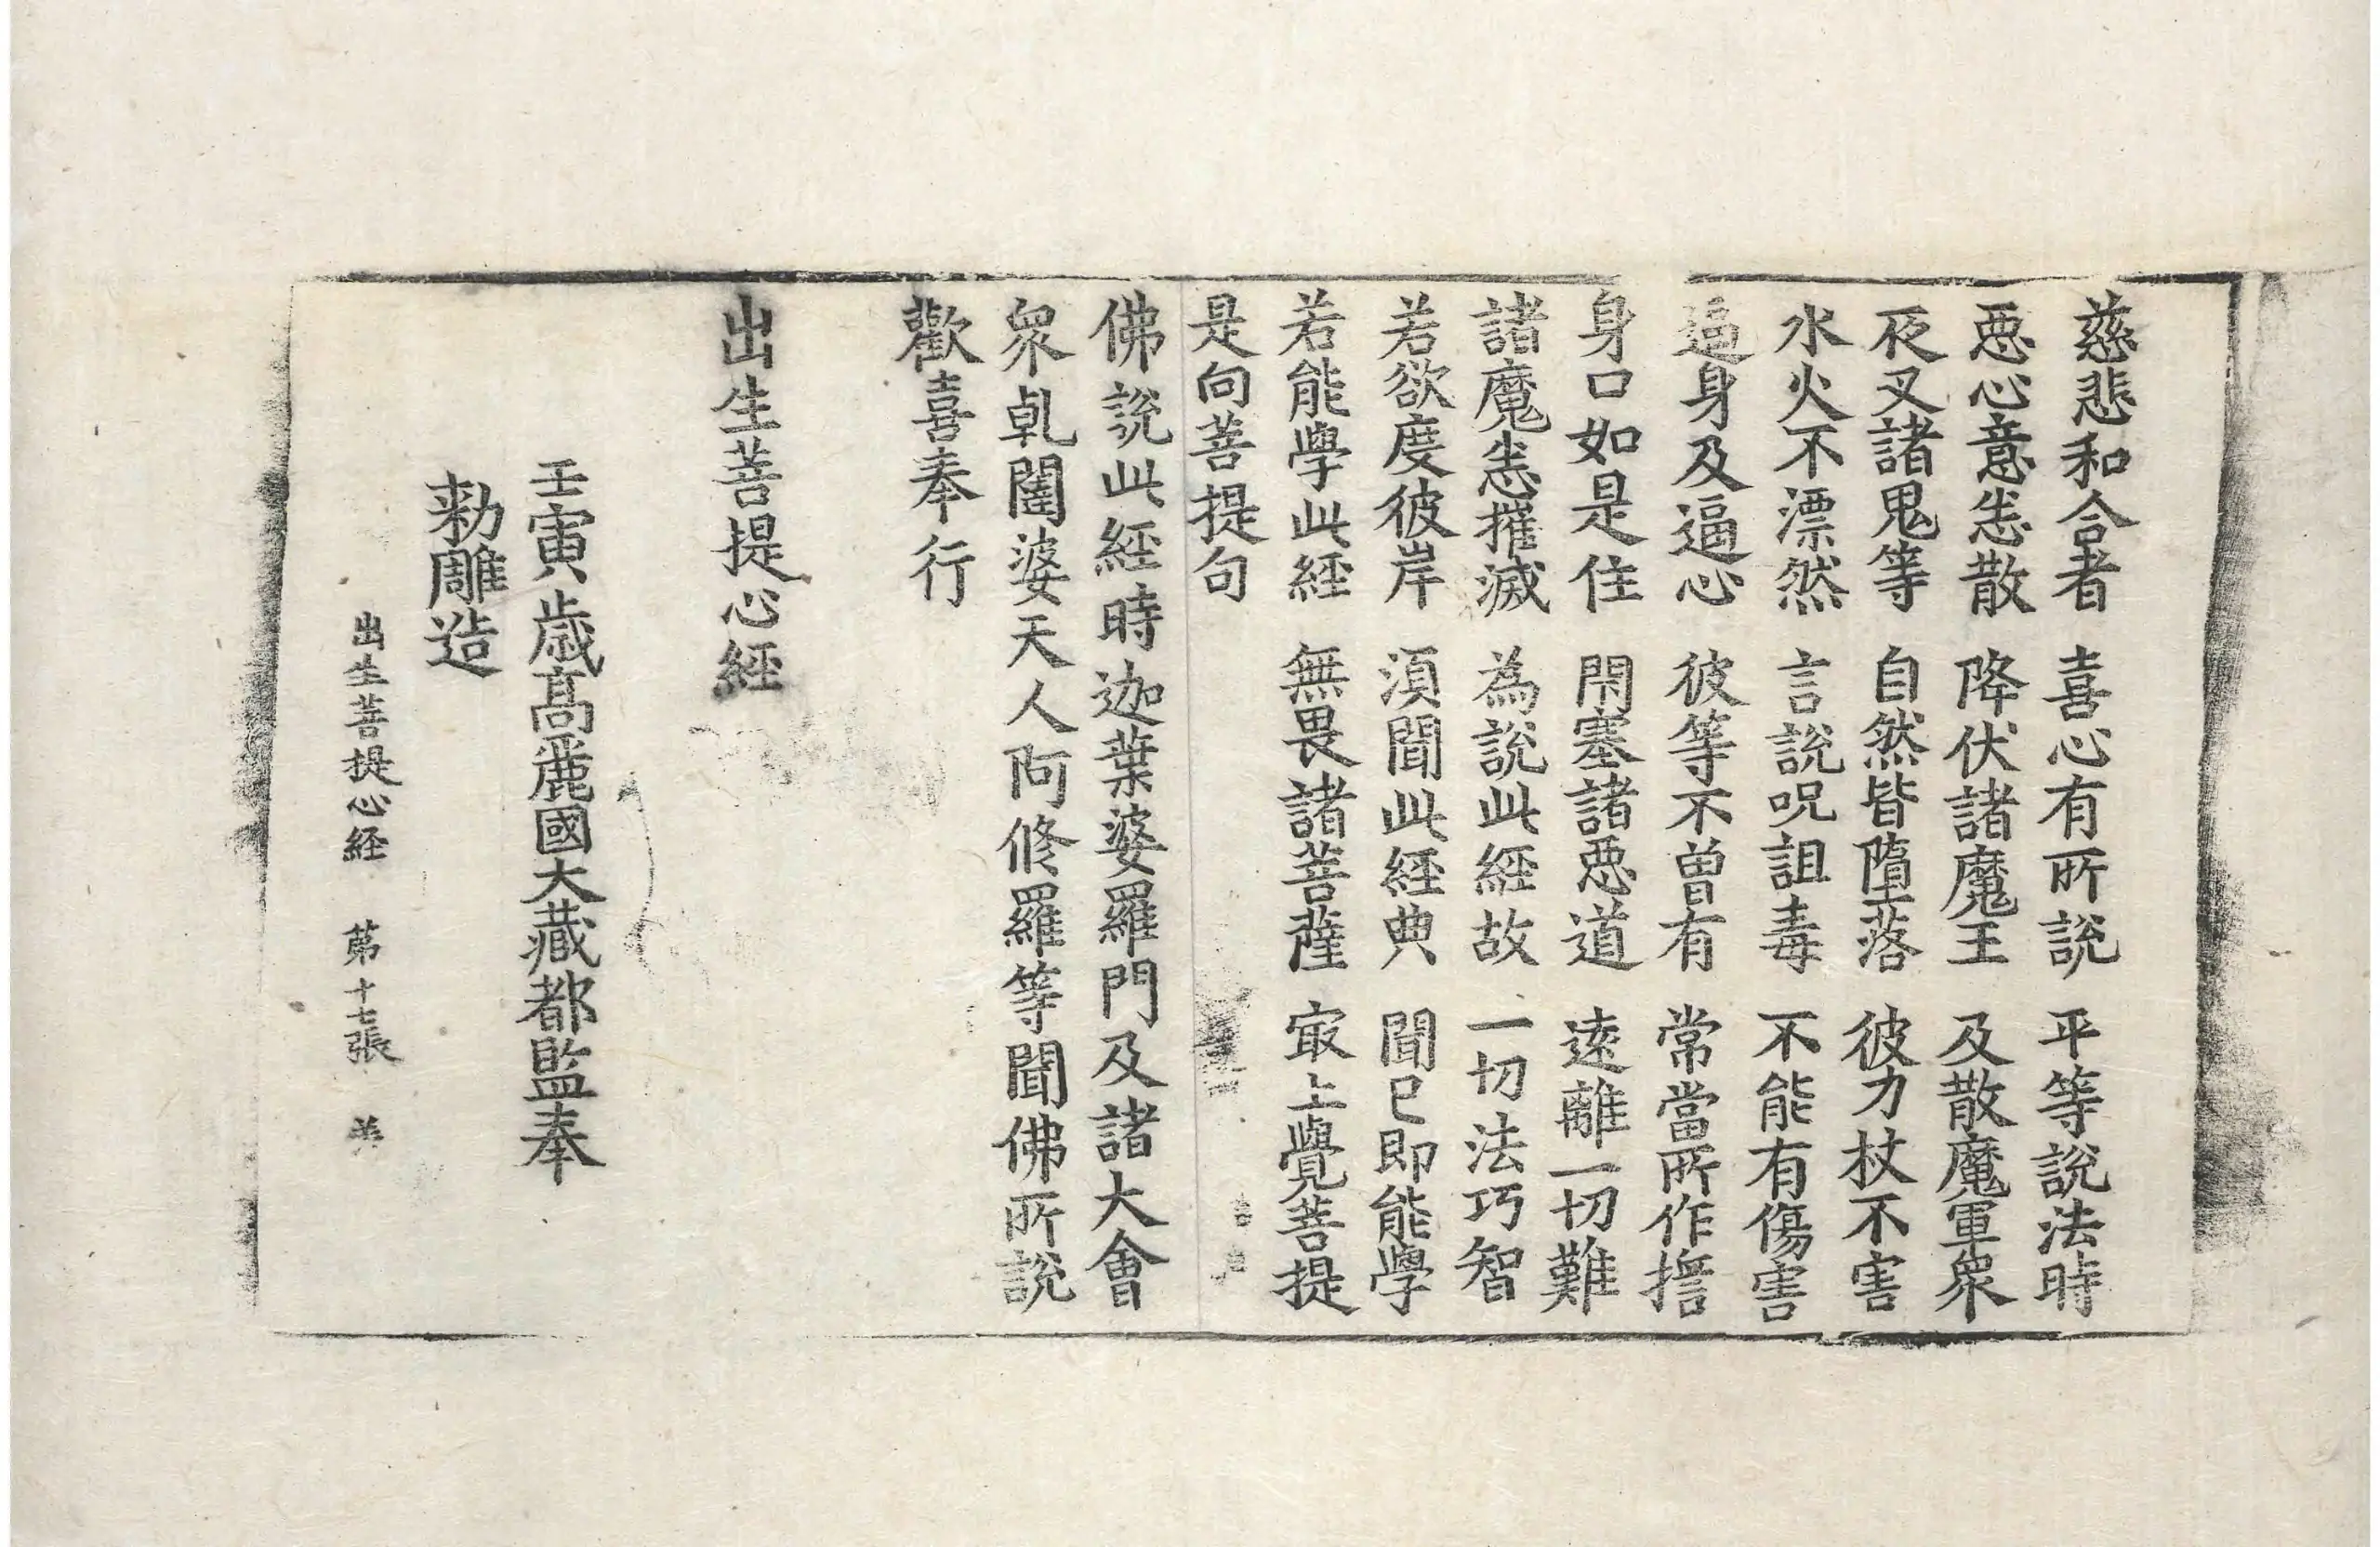 慈悲和合者 喜心有所說 平等說法時
惡心意恙散 降伏諸魔王 及散魔軍衆
夜叉諸鬼等 自然皆墮落 彼力杖不害
水火不漂然 言說呪詛毒 不能有傷害
逼身及逼心 彼等不曾有 常當所作擔
身口如是住 閇塞諸惡道 遠離一切難
諸魔恙摧滅 為說此經故 一切法巧智
若欲度彼岸 須聞此經典 聞已即能學
若能學此經 無畏諸菩薩 㝡上覺菩提
是向菩提句
佛說此經時迦葉婆羅門及諸大會
衆乹闥婆天人阿修羅等聞佛所說
歡喜奉行
出生菩提心經
壬寅歲高麗國大藏都監奉
勑雕造
出生菩提心経 第十七張